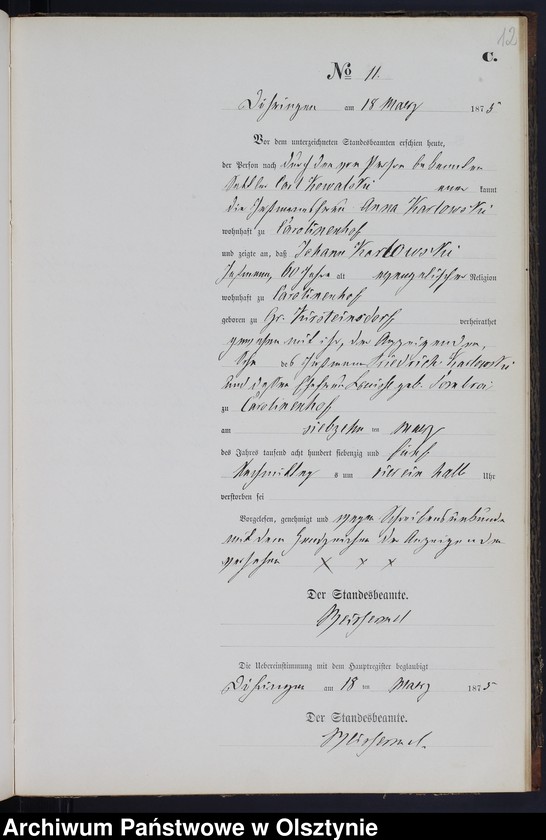 12
C.
No 11.
Döhringen am 18 März 1875
Vor dem unterzeichneten Standesbeamten erschien heute,
der Person nach durch den von Person bekannten
Carl Kowalski kannt
die Instmannsfrau Anna Karlowski
wohnhaft zu Carolinenhof
und zeigte an, daß Johann Karlowski
Instmann, 60 Jahre alt evangelischer Religion
wohnhaft zu Carolinenhof
geboren zu Gr. Kirsteinsdorf verheirathet
gewesen mit ihr, der Anzeigenden,
Sohn des Instmann Friedrich Karlowski
und dessen Ehefrau geb.
zu Carolinenhof
am siebzehn ten März
des Jahres tausend acht hundert siebenzig und fünf
Nachmittag s um ein halb Uhr
verstorben sei
Vorgelesen, genehmigt und wegen Schreibensunkunde
mit dem Handzeichen der Anzeigenden
versehen X X X
Der Standesbeamte.
Die Uebereinstimmung mit dem Hauptregister beglaubigt
Döhringen am 18 ten März 1875
Der Standesbeamte.
Archiwum Państwowe w Olsztynie